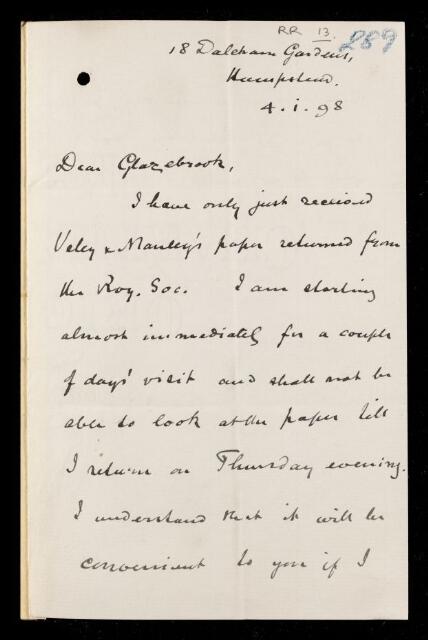 RR 13. 289
18 Daleham Gardens,
Hampstead.
4.i.98
Dear Glazebrook,
I have only just received
Veley & Manley's paper returned from
the Roy. Soc. I am starting
almost immediately for a couple
of days' visit and shall not be
able to look at the paper till
I return on Thursday evening.
I understand that it will be
convenient to you if I